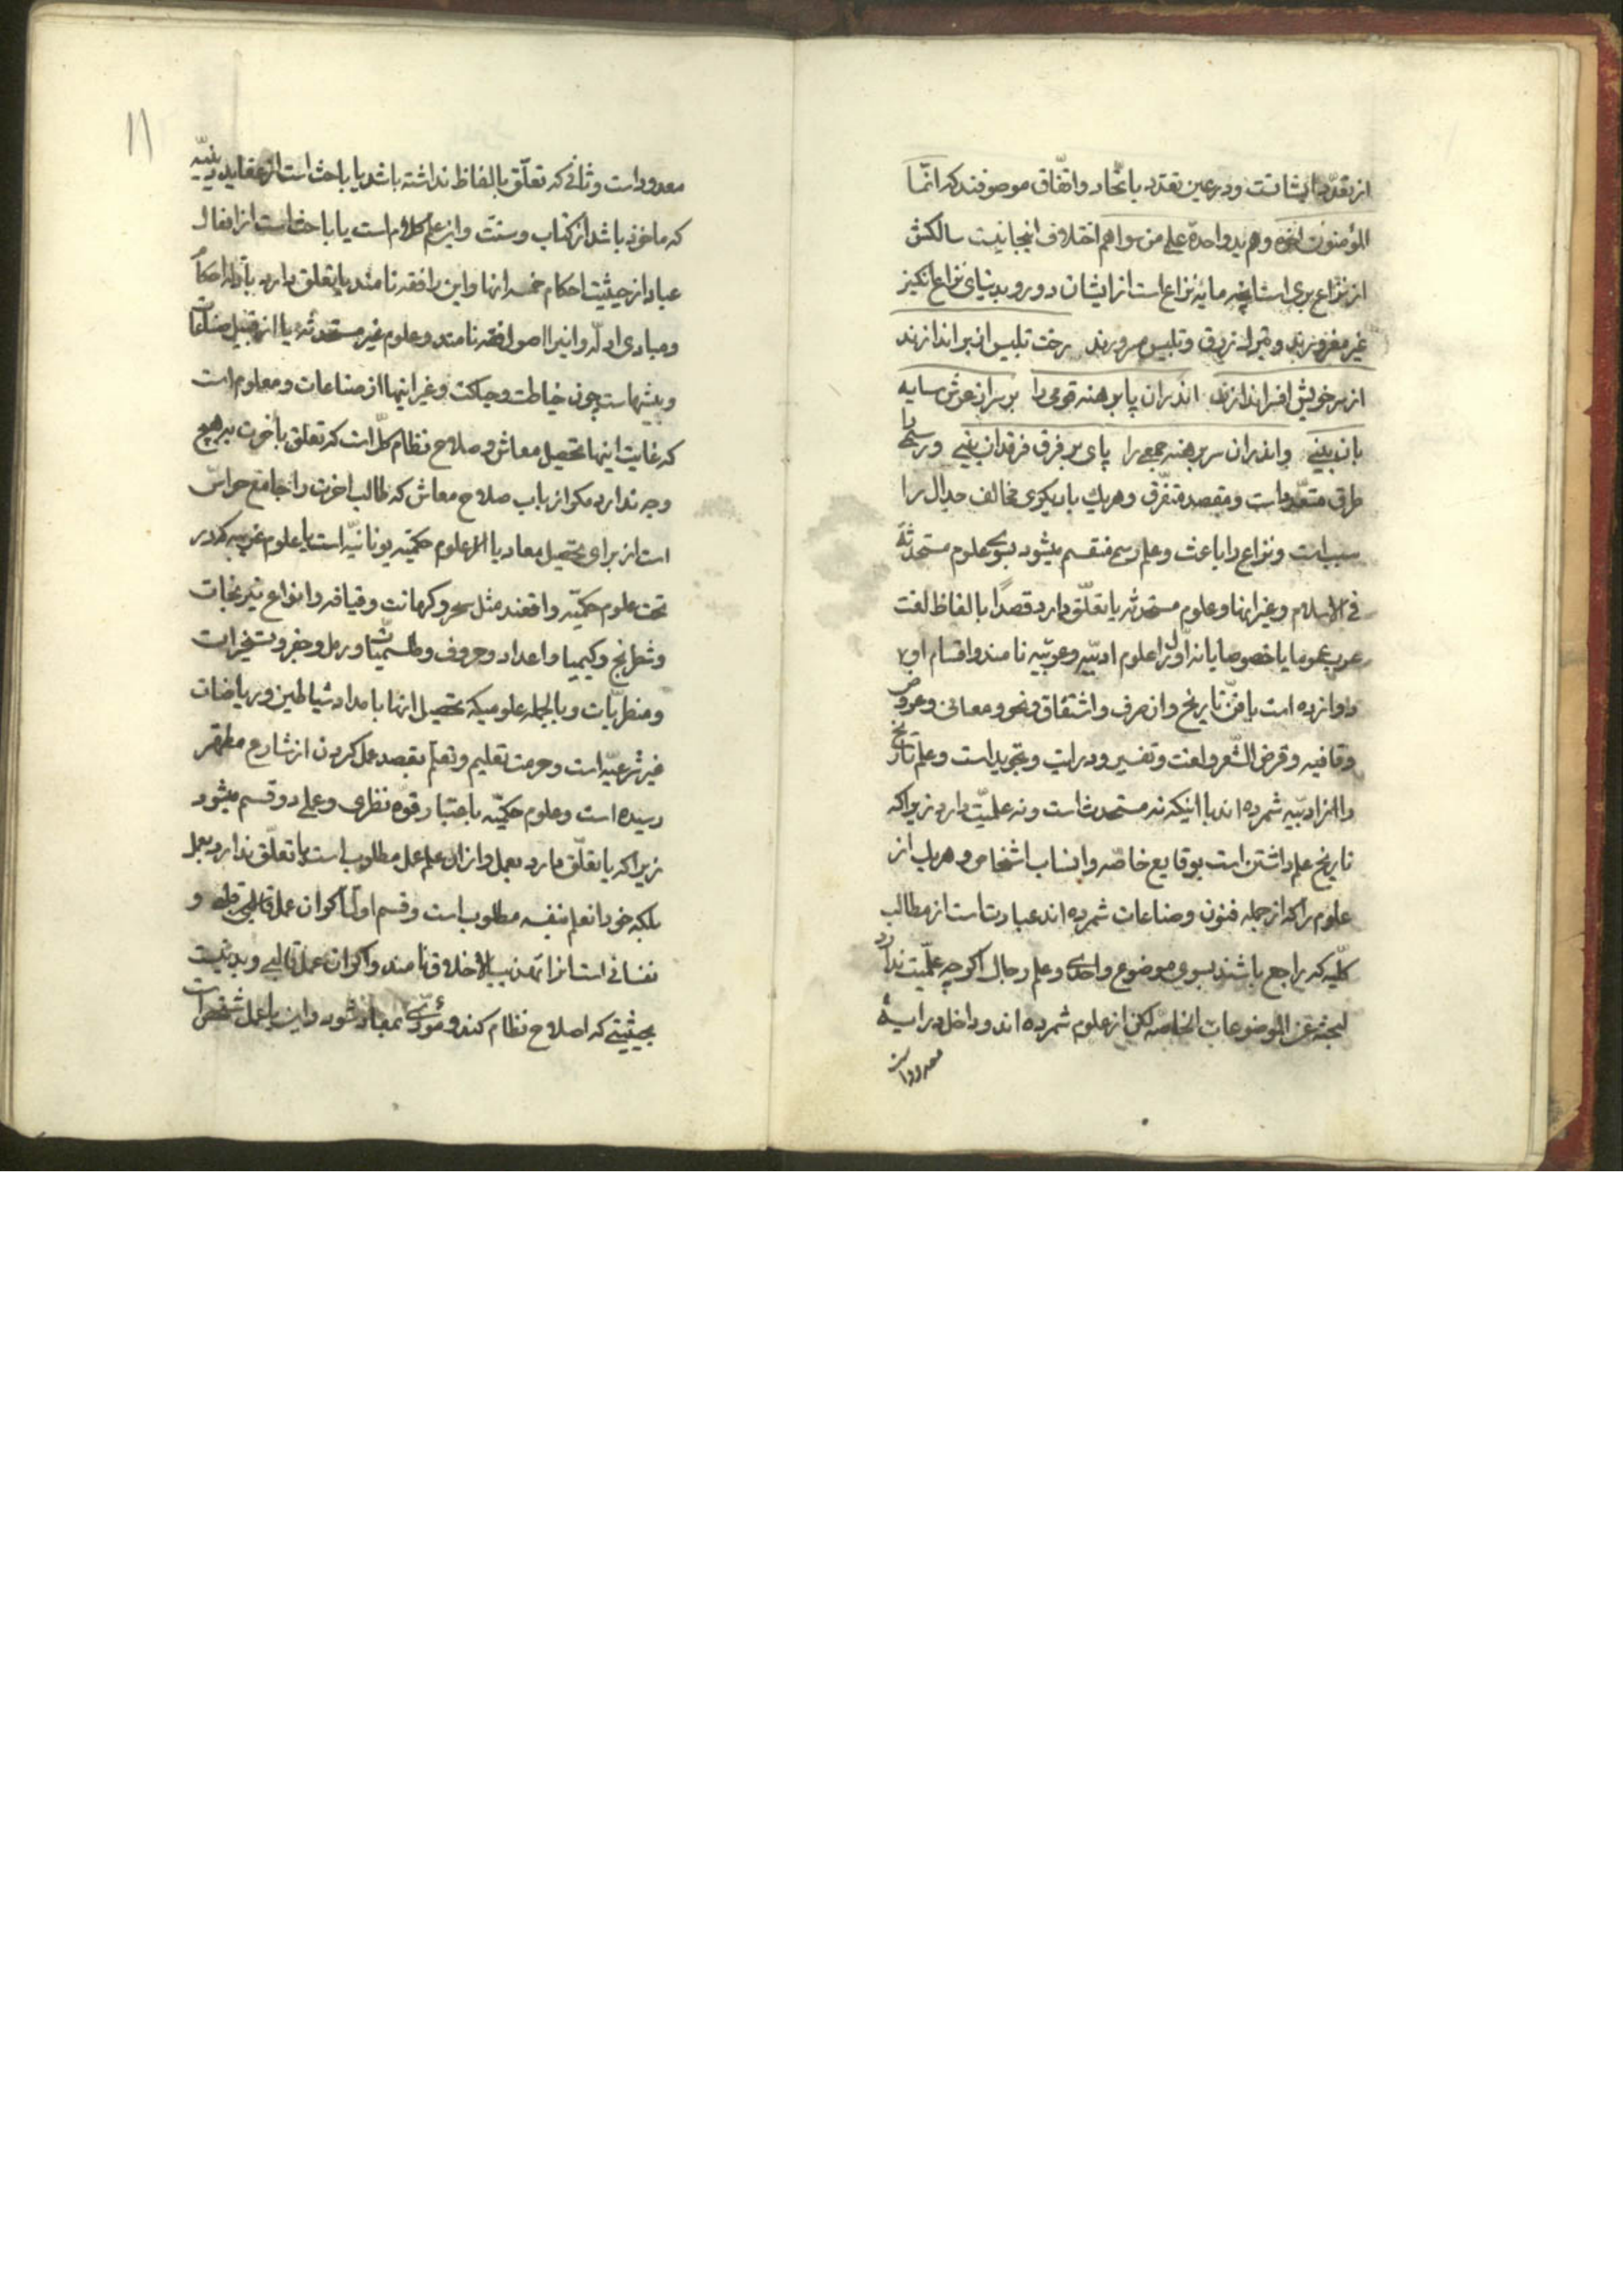 از تعدّد ایشانست و در عین تعدّد باتّحاد و اتّفاق موصوفند که انّما
المؤمنون اخوة و هم ید واحدة علی من سواهم اختلاف اینجا نیست سالکش
از نزاع بری است آنچه مایه نزاع است از ایشان دور و بدنیای نزاع انگیز
غیر مغرورند و زرق و تلبیس رخت تلبیس از بر اندازند
از سر خویش افسر اندازند اندران پا برهنه قومی را بر سران عرش سایه
بان بینی و اندران سر برهنه جمعی را پای بر فرق فرقدان بینی و رسمی را
طرق متعدّد است و مقصد متفرّق و هر یک با دیگری مخالف جدال را
سبب است و نزاع را باعث و علم رسمی منقسم میشود بسوی علوم مستحدثه
فی الاسلام و غیر انها و علوم مستحدثه یا تعلّق دارد قصدًا بالفاظ لغت
عرب عموما یا خصوصا یا نه اوّل را علوم ادبیّه و عربیّه نامند و اقسام او
دوازده است با فنّ تاریخ و ان صرف و اشتقاق و نحو و معانی و عروض
و قافیه و قرض الشّعر و لغت و تفسیر و درایت و تجوید است و علم تاریخ
را از ادبیّه شمرده اند با اینکه نه مستحدث است و نه علمیّت دارد زیرا که
تاریخ علم داشتن است بوقایع خاصّه و انساب اشخاص و هر یک از
علوم را که از جمله فنون و صناعات شمرده اند عبارت است از مطالب
کلّیه که راجع باشند بسوی موضوع واحدی و علم رجال اگرچه علمیّت ندارد
لبحثه عن الموضوعات الخاصّه لکن از علوم شمرده اند و داخل درایة
معدود است
۱۱
معدود است و ثانی که تعلّق بالفاظ نداشته باشد یا باحث است از عقاید دینیّه
که ماخوذ باشد از کتاب و سنّت و این علم کلام است یا باحث است از افعال
عباد از حیثیت احکام خمسه انها و این را فقه نامند یا تعلق دارد بادله احکام
و مبادی ادلّه و انرا اصول فقه نامند و علوم غیر مستحدثه یا از قبیل صناعات
و پیشهاست چون خیاطت و حیاکت و غیر اینها از صناعات و معلوم است
که غایت اینها تحصیل معاش و صلاح نظام کلّ است که تعلق بآخرت بهیچ
وجه ندارد مگر از باب صلاح معاش که طالب اخرت را جامع حواسّ
است از برای تحصیل معاد یا از علوم حکمیّه یونانیّه است یا علوم غریبه که در
تحت علوم حکمیّه واقعند مثل سحر و کهانت و قیافه و انواع نیرنجات
و شطرنج و کیمیا و اعداد و حروف و طلسمیّات و رمل و جفر و تسخیرات
و منطریّات و بالجمله علومیکه تحصیل انها بامداد شیاطین و ریاضات
غیر شرعیّه است و حرمت تعلیم و تعلّم بقصد عمل کردن از شارع مطهّر
رسیده است و علوم حکمیّه باعتبار قوّه نظری و عملی دو قسم میشود
زیرا که یا تعلّق دارد بعمل و از ان علم عمل مطلوب است یا تعلّق ندارد بعمل
بلکه خود ان علم بنفسه مطلوب است و قسم اوّل اگر ان عمل قلبی و
نفسانی است انرا تهذیب الاخلاق نامند و اگر ان عمل قالبی و بدنیست
بحیثیّتی که اصلاح نظام کند و مؤدّی بمعاد شود و این یا عمل شخص است